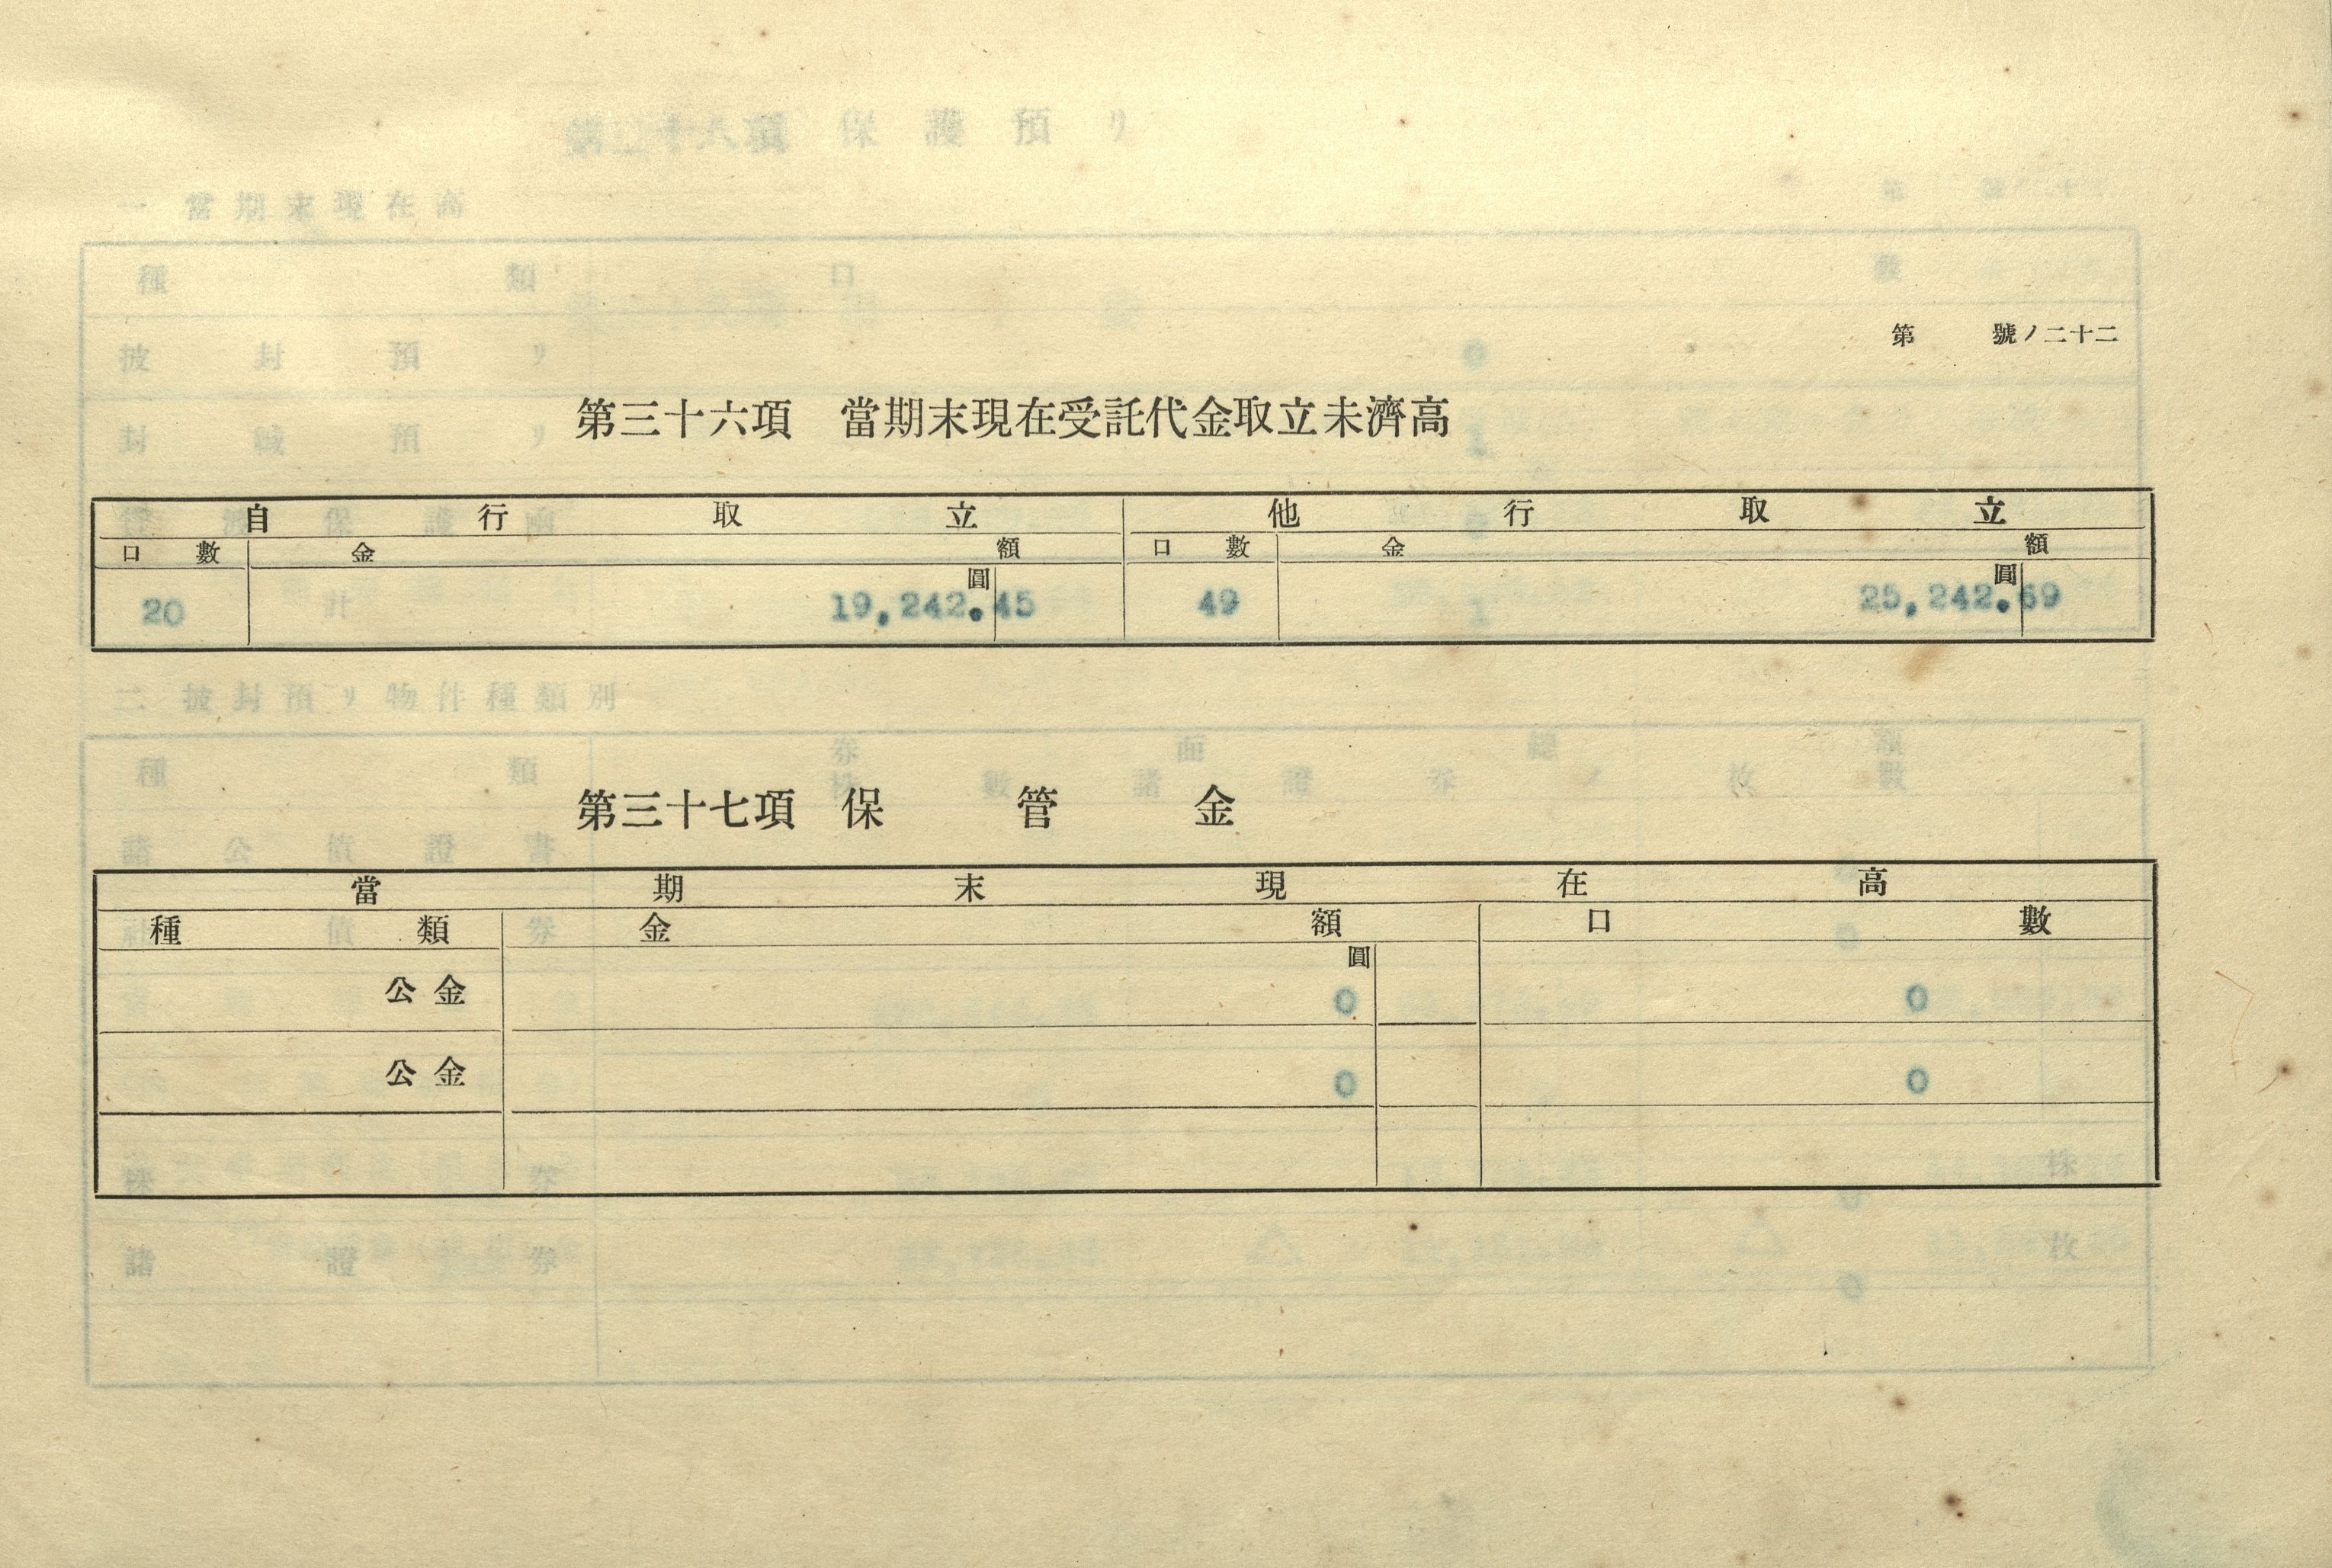 第 號ノ二十二
第三十六項 當期末現在受託代金取立未濟高
自行取立 他行取立
口數 金額 口數 金額
圓 圓
20 19,242.45 49 25,242.69
第三十七項 保管金
當期末現在高
種類 金額 口數
圓
公金 0 0
公金 0 0